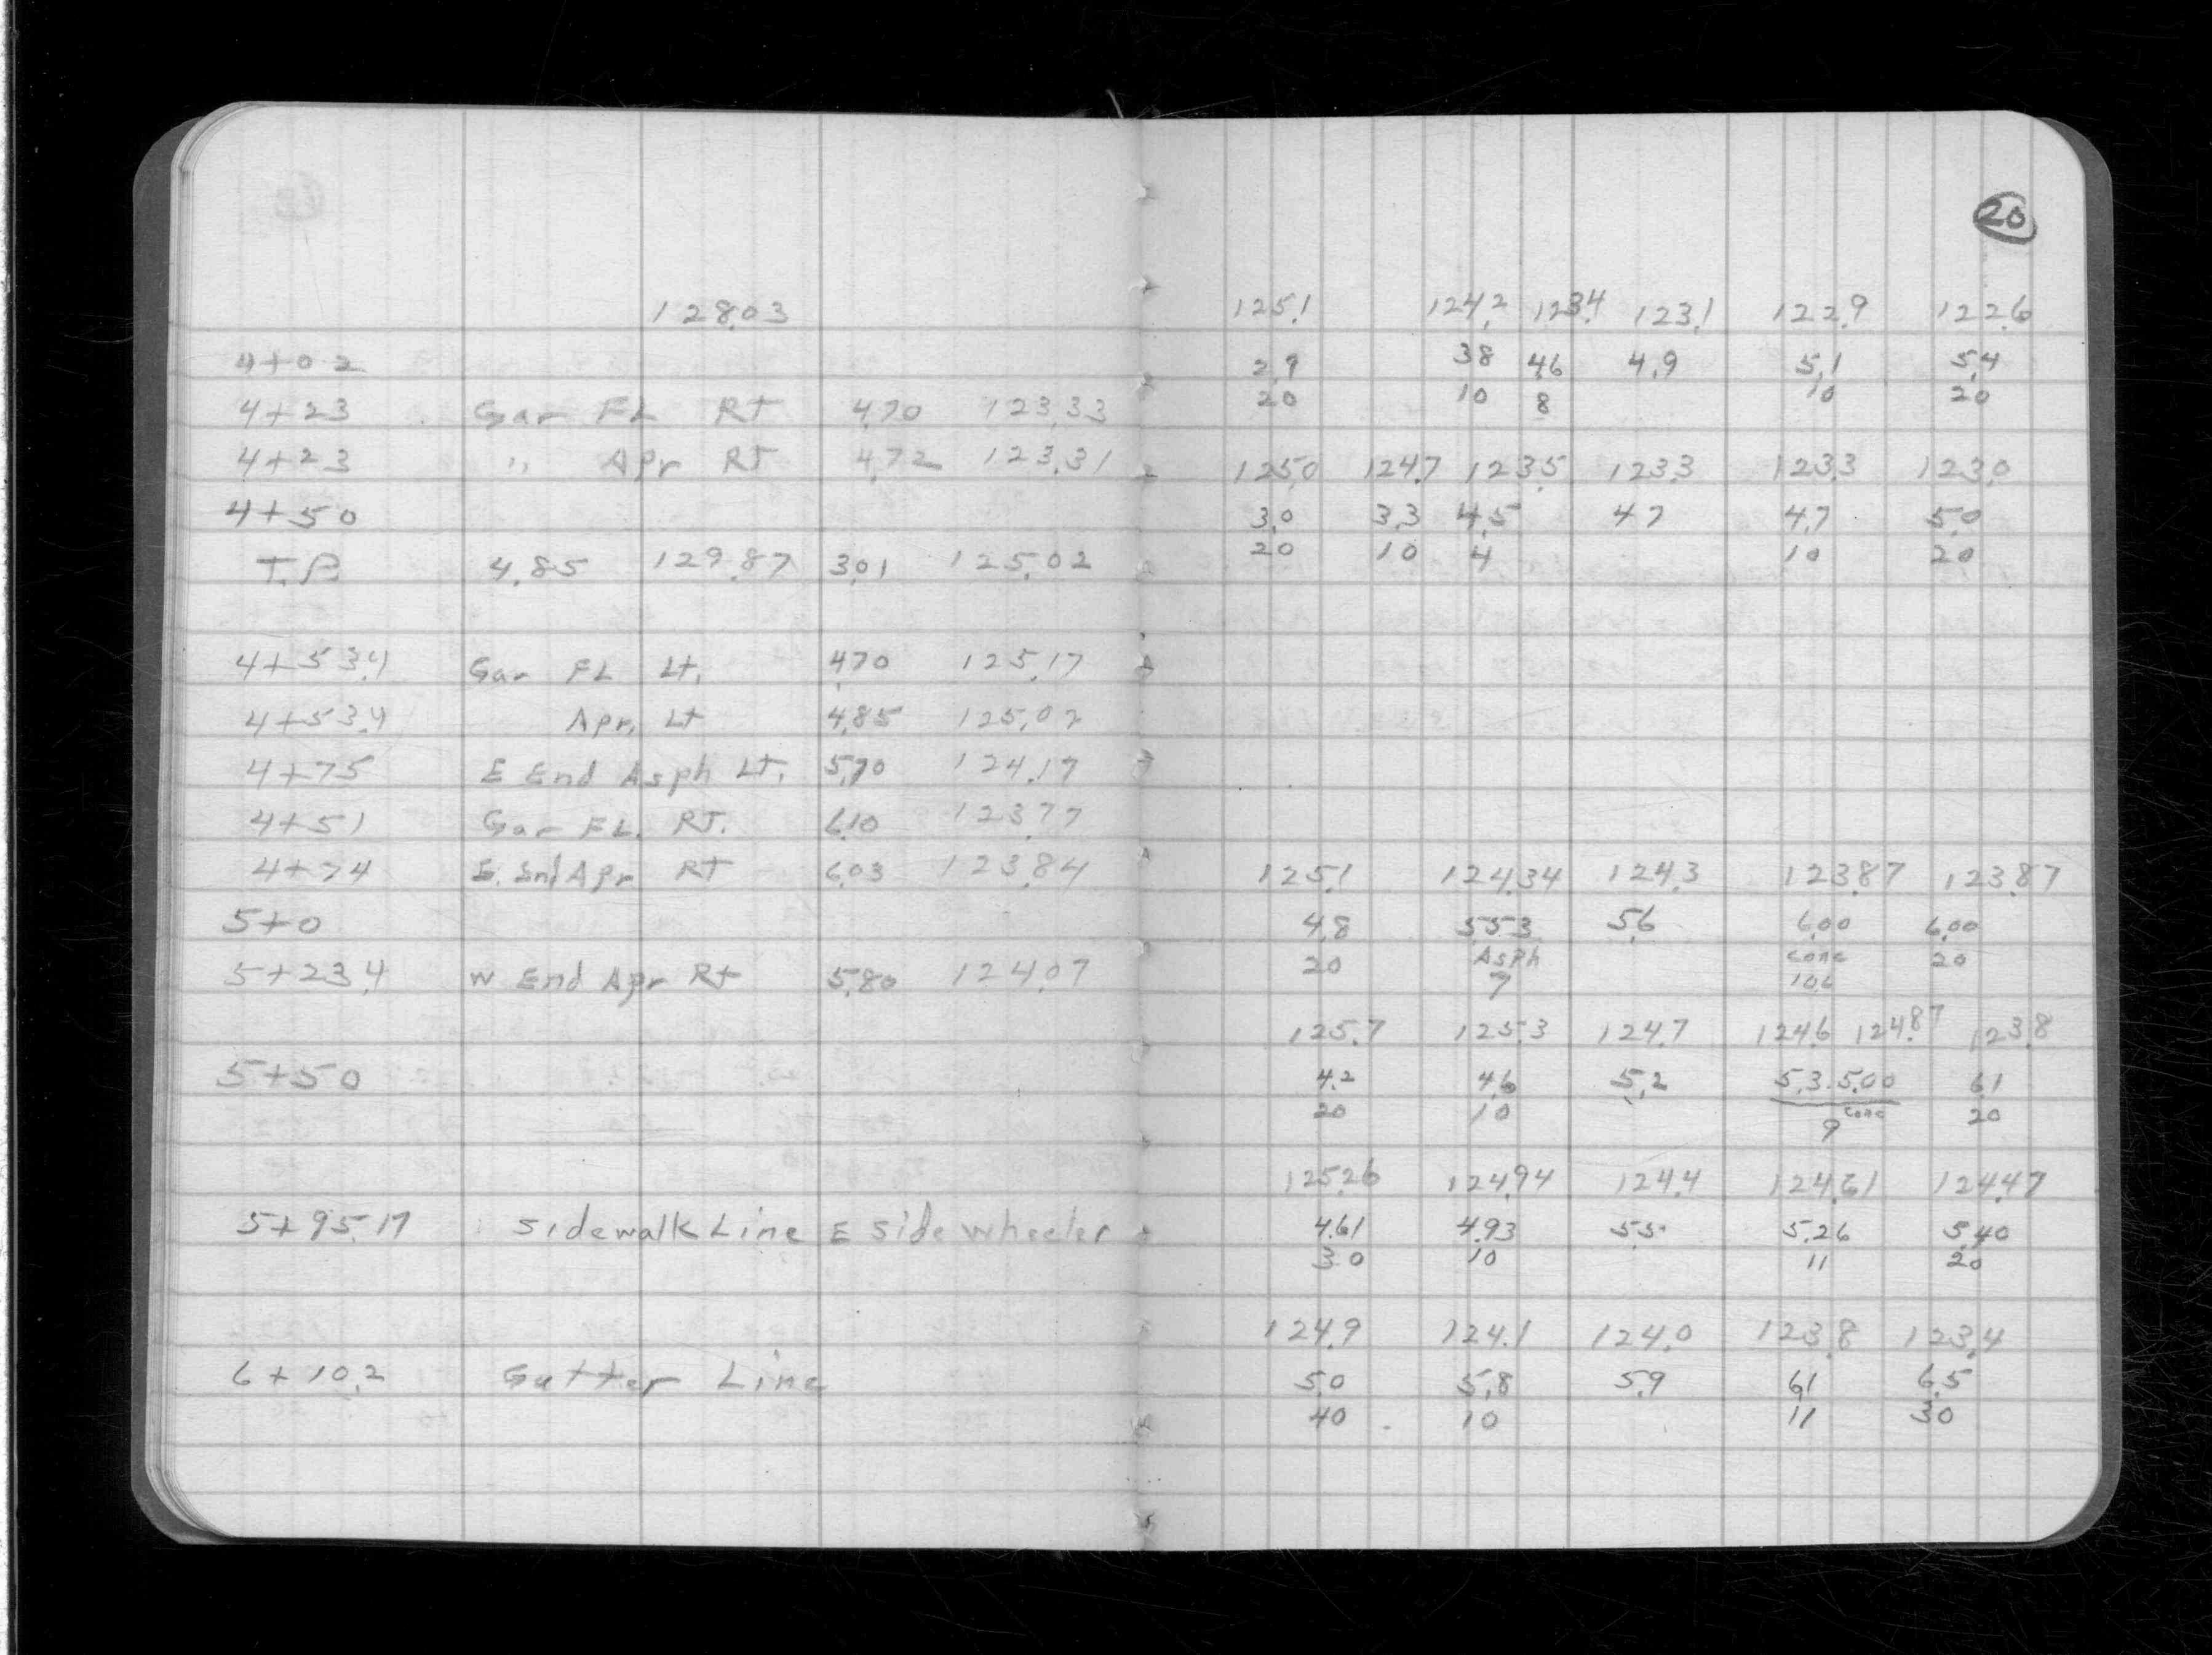 20
128.03
4+02
4+23 Gar FL RT 4.70 123.33
4+23 " Apr RT 4.72 123.31
4+50
T.P. 4.85 129.87 3.01 125.02
4+53.4 Gar FL Lt. 4.70 125.17
4+53.4 Apr. Lt 4.85 125.02
4+75 E End Asph Lt. 5.70 124.17
4+51 Gar FL. RT. 6.10 123.77
4+74 E. End Apr RT 6.03 123.84
5+0
5+23.4 W End Apr Rt 5.80 124.07
5+50
5+95.17 Sidewalk Line E Side Wheeler
6+10.2 Gutter Line
125.1 124.2 123.4 123.1 122.9 122.6
2.9 3.8 4.6 4.9 5.1 5.4
20 10 8 10 20
125.0 124.7 123.5 123.3 123.3 123.0
3.0 3.3 4.5 4.7 4.7 5.0
20 10 4 10 20
125.1 124.34 124.3 123.87 123.87
4.8 5.53 5.6 6.00 6.00
20 Asph conc 20
7 10.6
125.7 125.3 124.7 124.6 124.87 123.8
4.2 4.6 5.2 5.3 5.00 6.1
20 10 conc 20
9
125.26 124.94 124.4 124.61 124.47
4.61 4.93 5.5 5.26 5.40
30 10 11 20
124.9 124.1 124.0 123.8 123.4
5.0 5.8 5.9 6.1 6.5
40 10 11 30